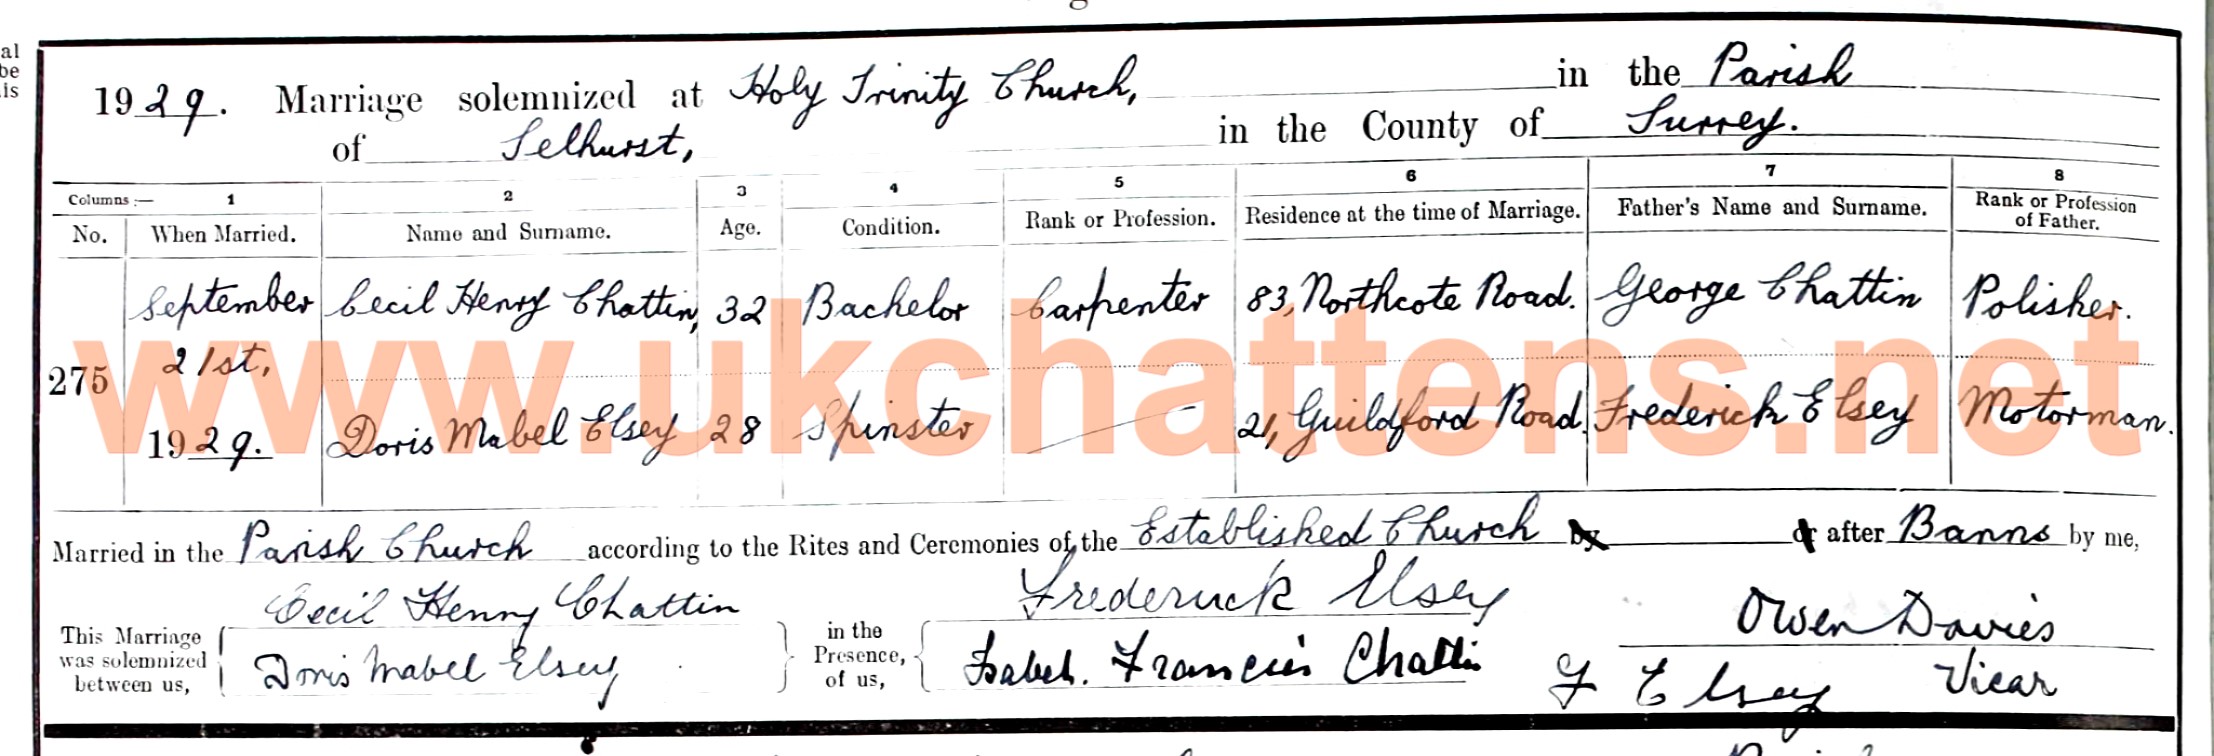 al
be
is
1929. Marriage solemnized at Holy Trinity Church, in the Parish
of Selhurst, in the County of Surrey.
Columns :— 1 2 3 4 5 6 7 8
No. When Married. Name and Surname. Age. Condition. Rank or Profession. Residence at the time of Marriage. Father's Name and Surname. Rank or Profession of Father.
September Cecil Henry Chattin, 32 Bachelor Carpenter 83, Northcote Road. George Chattin Polisher.
275 21st,
1929. Doris Mabel Elsey 28 Spinster 21, Guildford Road. Frederick Elsey Motorman.
www.ukchattens.net
Married in the Parish Church according to the Rites and Ceremonies of the Established Church by or after Banns by me,
Cecil Henry Chattin Frederick Elsey Owen Davies
This Marriage was solemnized between us, in the Presence, of us,
Doris Mabel Elsey Isabel. Francis Chattin F Elsey Vicar